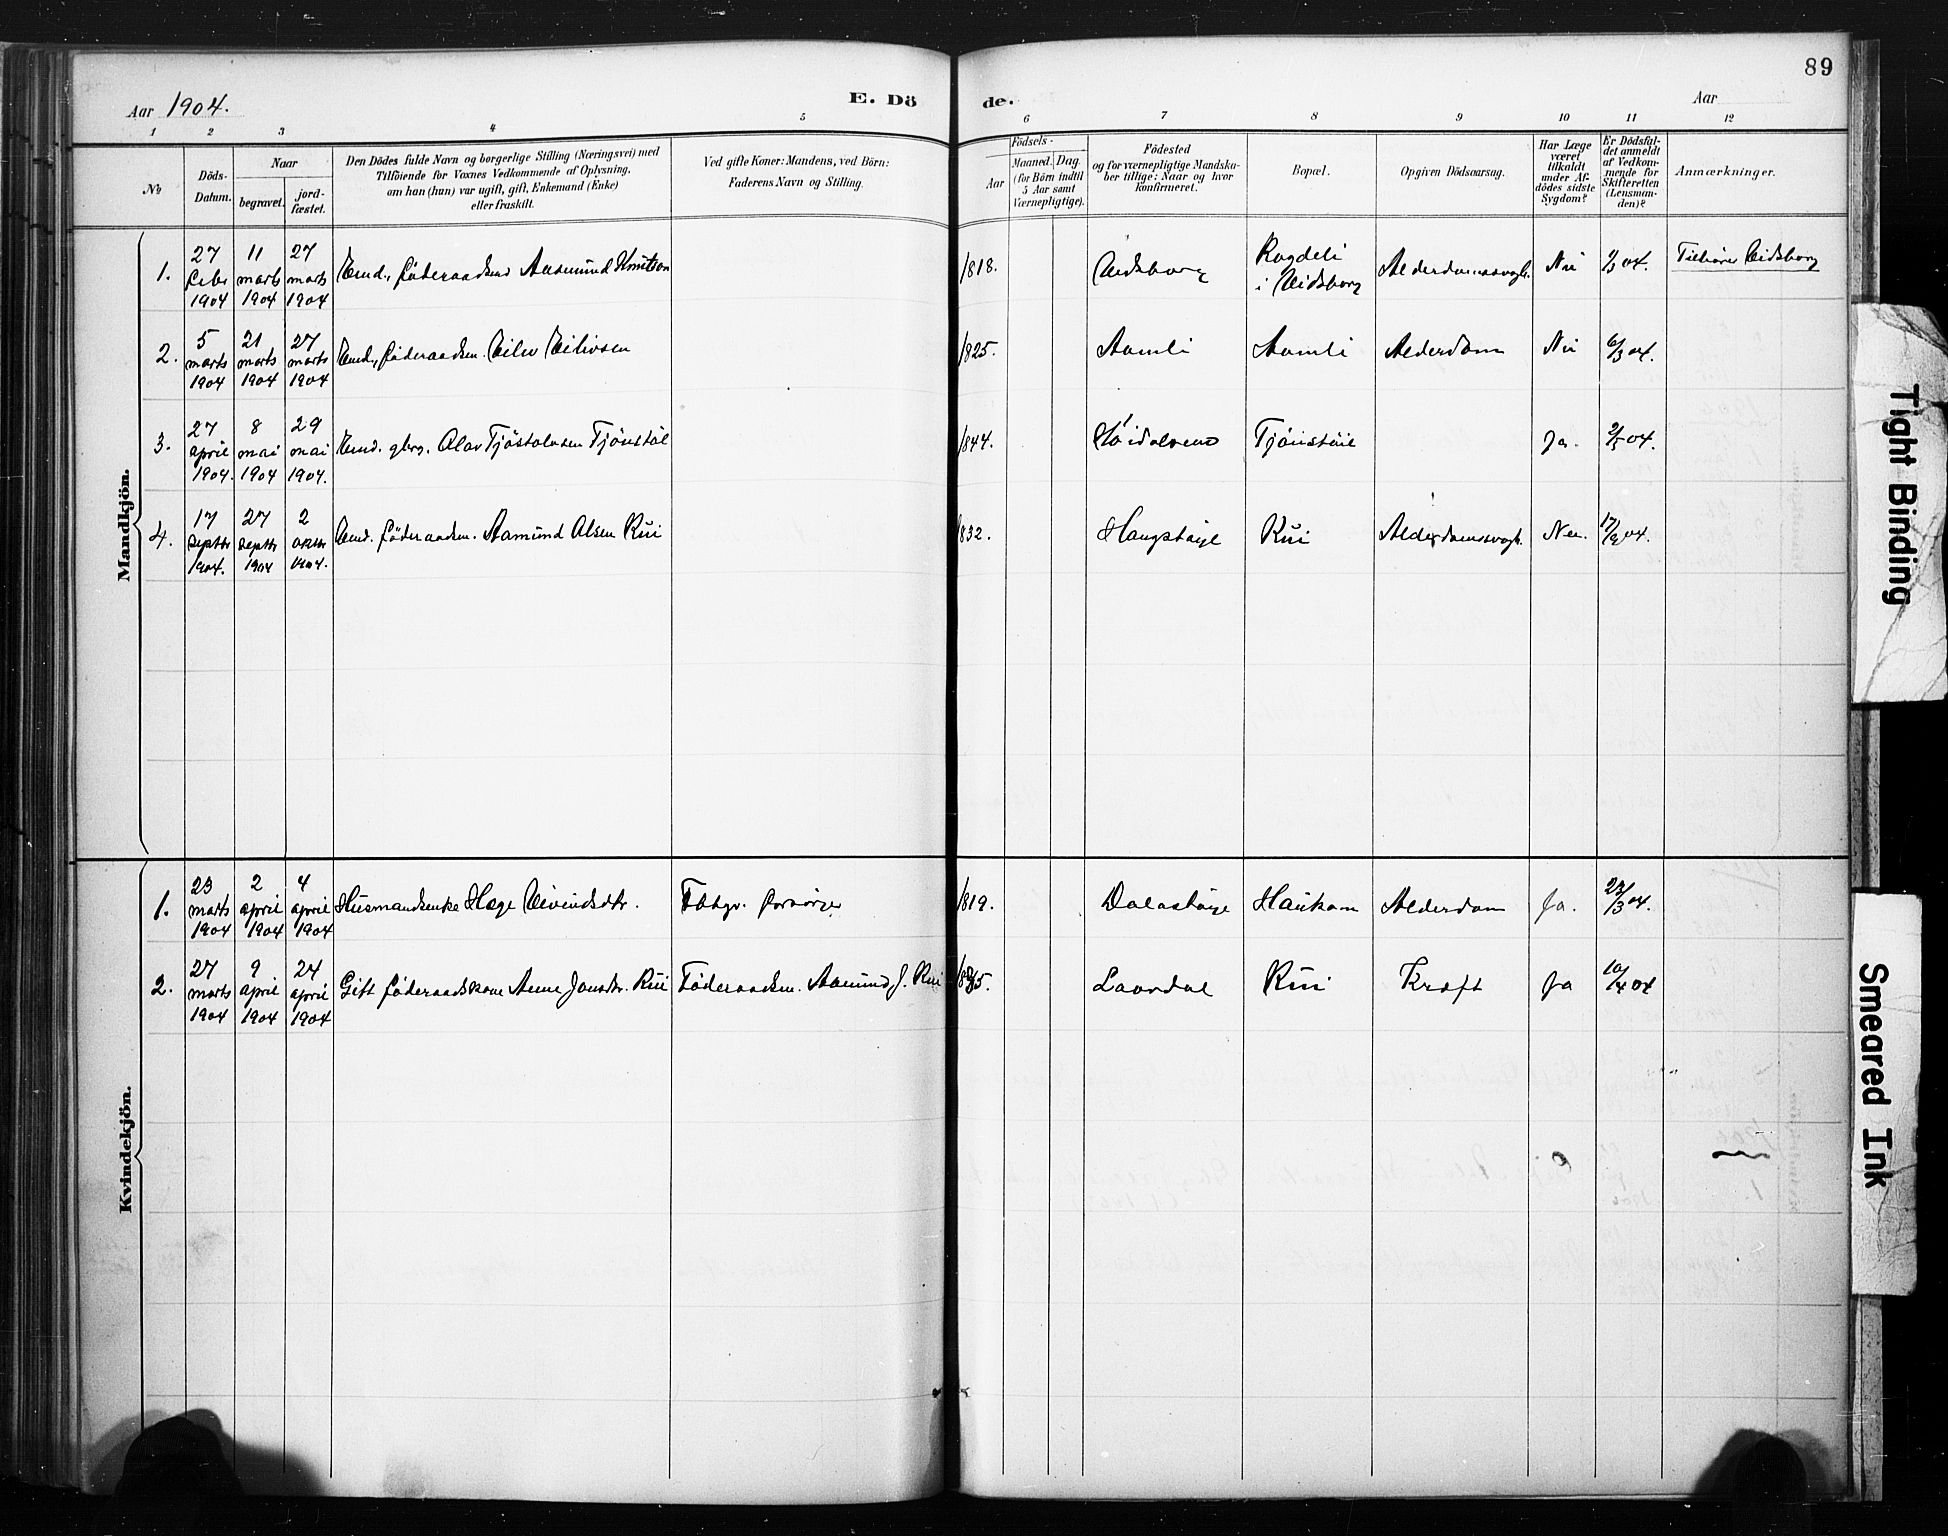 Aar 1904.
E. Dö
de.
Aar
89
1 2 3 4 5 6 7 8 9 10 11 12
No
Döds-
Datum.
Naar
begravet.
jord-
fæstet.
Den Dödes fulde Navn og borgerlige Stilling (Næringsvei) med
Tilföiende for Voxnes Vedkommende af Oplysning,
om han (hun) var ugift, gift, Enkemand (Enke)
eller fraskilt.
Ved gifte Koner: Mandens, ved Börn:
Faderens Navn og Stilling.
Födsels-
Aar
Maaned. Dag.
(for Börn indtil
5 Aar samt
Værnepligtige).
Födested
og for værnepligtige Mandska-
ber tillige: Naar og hvor
Konfirmeret.
Bopæl.
Opgiven Dödsaarsag.
Har Læge
været
tilkaldt
under Af-
dödes sidste
Sygdom?
Er Dödsfal-
det anmeldt
af Vedkom-
mende for
Skifteretten
(Lensman-
den)?
Anmærkninger.
Mandkjön.
1. 27 febr 1904 11 marts 1904 27 marts 1904 Emd., föderaadsmd Aasmund Knutson 1818. Eidsborg Rogdeli i Eidsborg Alderdomssvagh. Nei 1/3 04. Tilhører Eidsborg
2. 5 marts 1904 21 marts 1904 27 marts 1904 Emd., föderaadsm. Eiliv Eilivsen 1825. Aamli Aamli Alderdom Nei 6/3 04.
3. 27 april 1904. 8 mai 1904 29 mai 1904. Emd. gbrg. Olav Tjöstolvsen Tjönstöl 1844. Høidalsmo Tjönstöil Ja. 2/5 04.
4. 17 septbr 1904. 27 septbr 1904 2 oktbr 1904. Emd. föderaadsm. Aamund Olsen Rui 1832. Haugstøyl Rui Alderdomssvagh. Nei. 17/9 04.
Kvindekjön.
1. 23 marts 1904 2 april 1904 4 april 1904 Husmandsenke Hæge Eivindsdtr. Fattgv. forsörger 1819. Dalastøyl Haukom Alderdom Ja. 23/3 04.
2. 27 marts 1904 9 april 1904 24 april 1904 Gift föderaadskone Anne Jonsdtr. Rui Föderaadsm. Aamund J. Rui Laurdal Rui Kræft Ja 10/4 04
Tight Binding
Smeared Ink